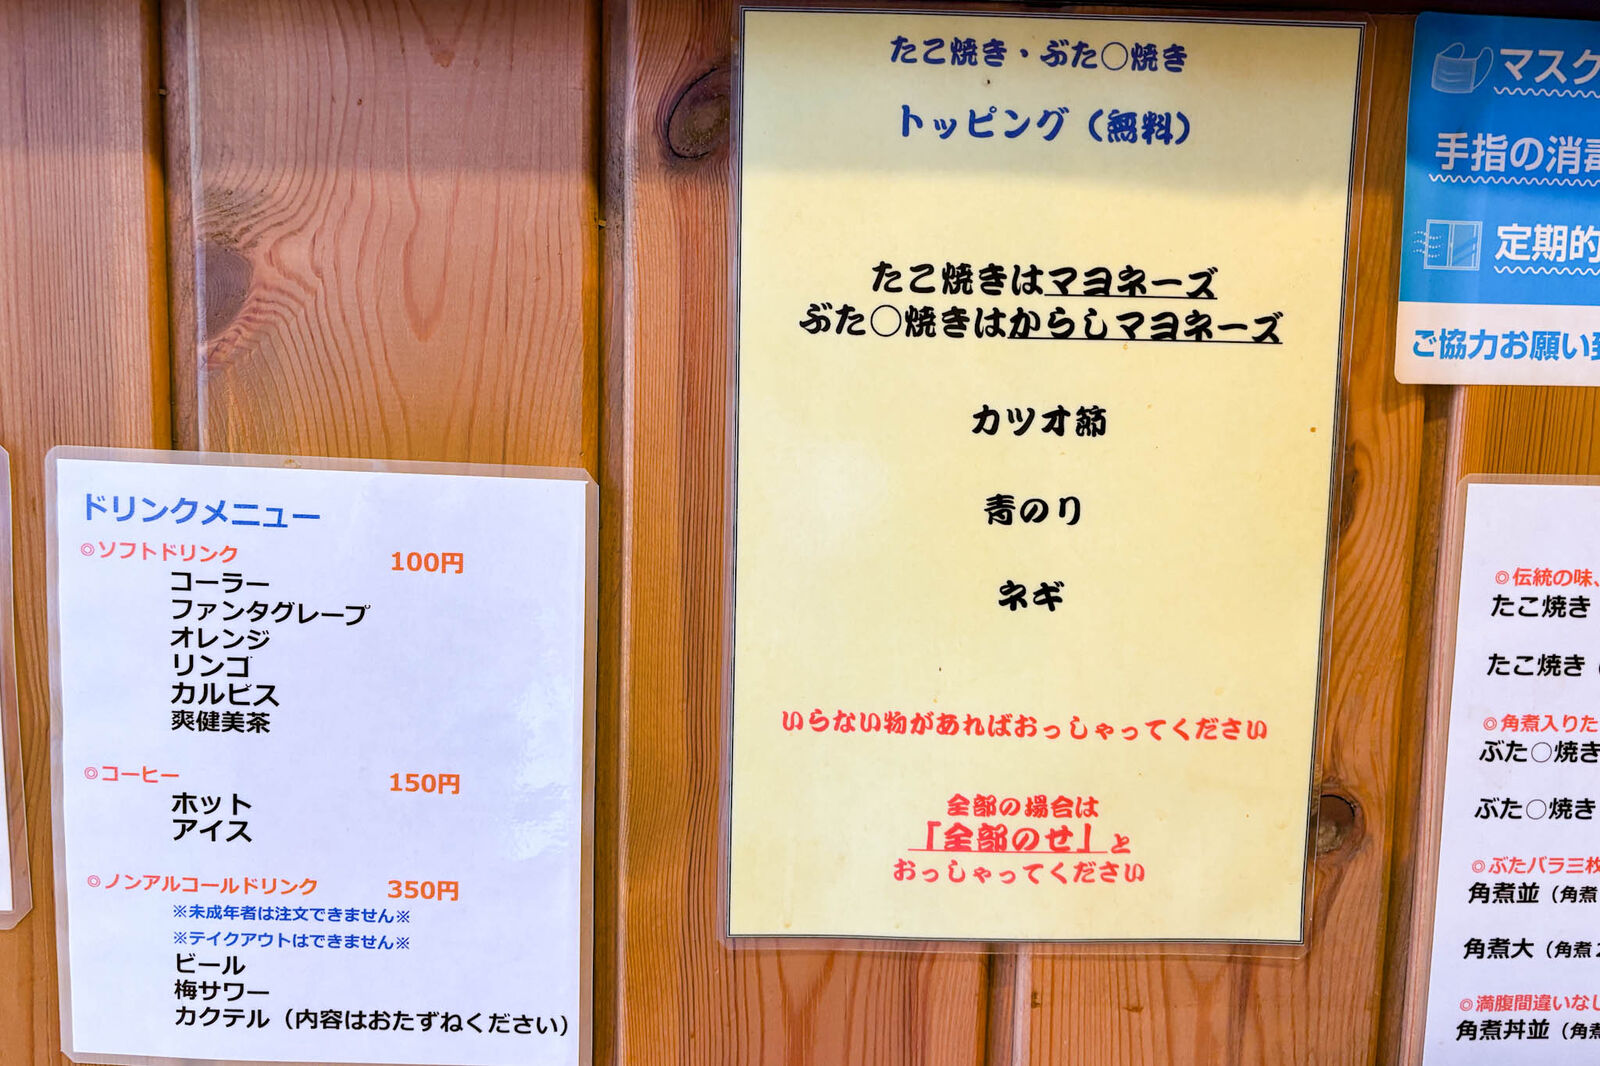 ドリンクメニュー
◎ソフトドリンク 100円
コーラー
ファンタグレープ
オレンジ
リンゴ
カルピス
爽健美茶
◎コーヒー 150円
ホット
アイス
◎ノンアルコールドリンク 350円
※未成年者は注文できません※
※テイクアウトはできません※
ビール
梅サワー
カクテル（内容はおたずねください）
たこ焼き・ぶた〇焼き
トッピング（無料）
たこ焼きはマヨネーズ
ぶた〇焼きはからしマヨネーズ
カツオ節
青のり
ネギ
いらない物があればおっしゃってください
全部の場合は
「全部のせ」と
おっしゃってください
マスク
手指の消毒
定期的
ご協力お願い致
◎伝統の味、
たこ焼き
たこ焼き（
◎角煮入りた
ぶた〇焼き
ぶた〇焼き
◎ぶたバラ三枚
角煮並（角煮
角煮大（角煮2
◎満腹間違いなし
角煮丼並（角煮